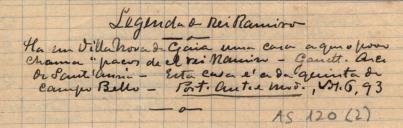 Legenda de Rei Ramiro
Ha em Villa Nova de Gaia uma casa a que o povo
chama "paços de el rei Ramiro - Garrett. Arco
de Sant'Anna - Esta casa é a da quinta de
campo Bello - Port. Ant. e Mod., V. 6, 93
AS 120 (2)